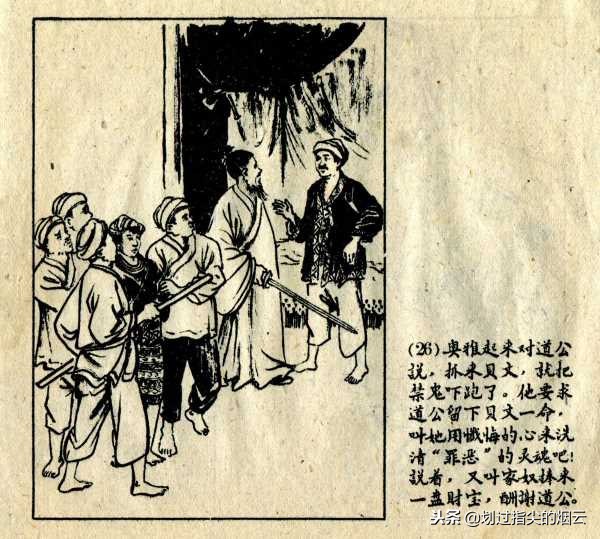 (26) 奥雅起来对道公
說，抓来貝文，就把
禁鬼下跑了。他要求
道公留下貝文一命，
叫她用懺悔的心来洗
清“罪恶”的灵魂吧！
說着，又叫家奴捧来
一盘财宝，酬謝道公。
头条 @划过指尖的烟云